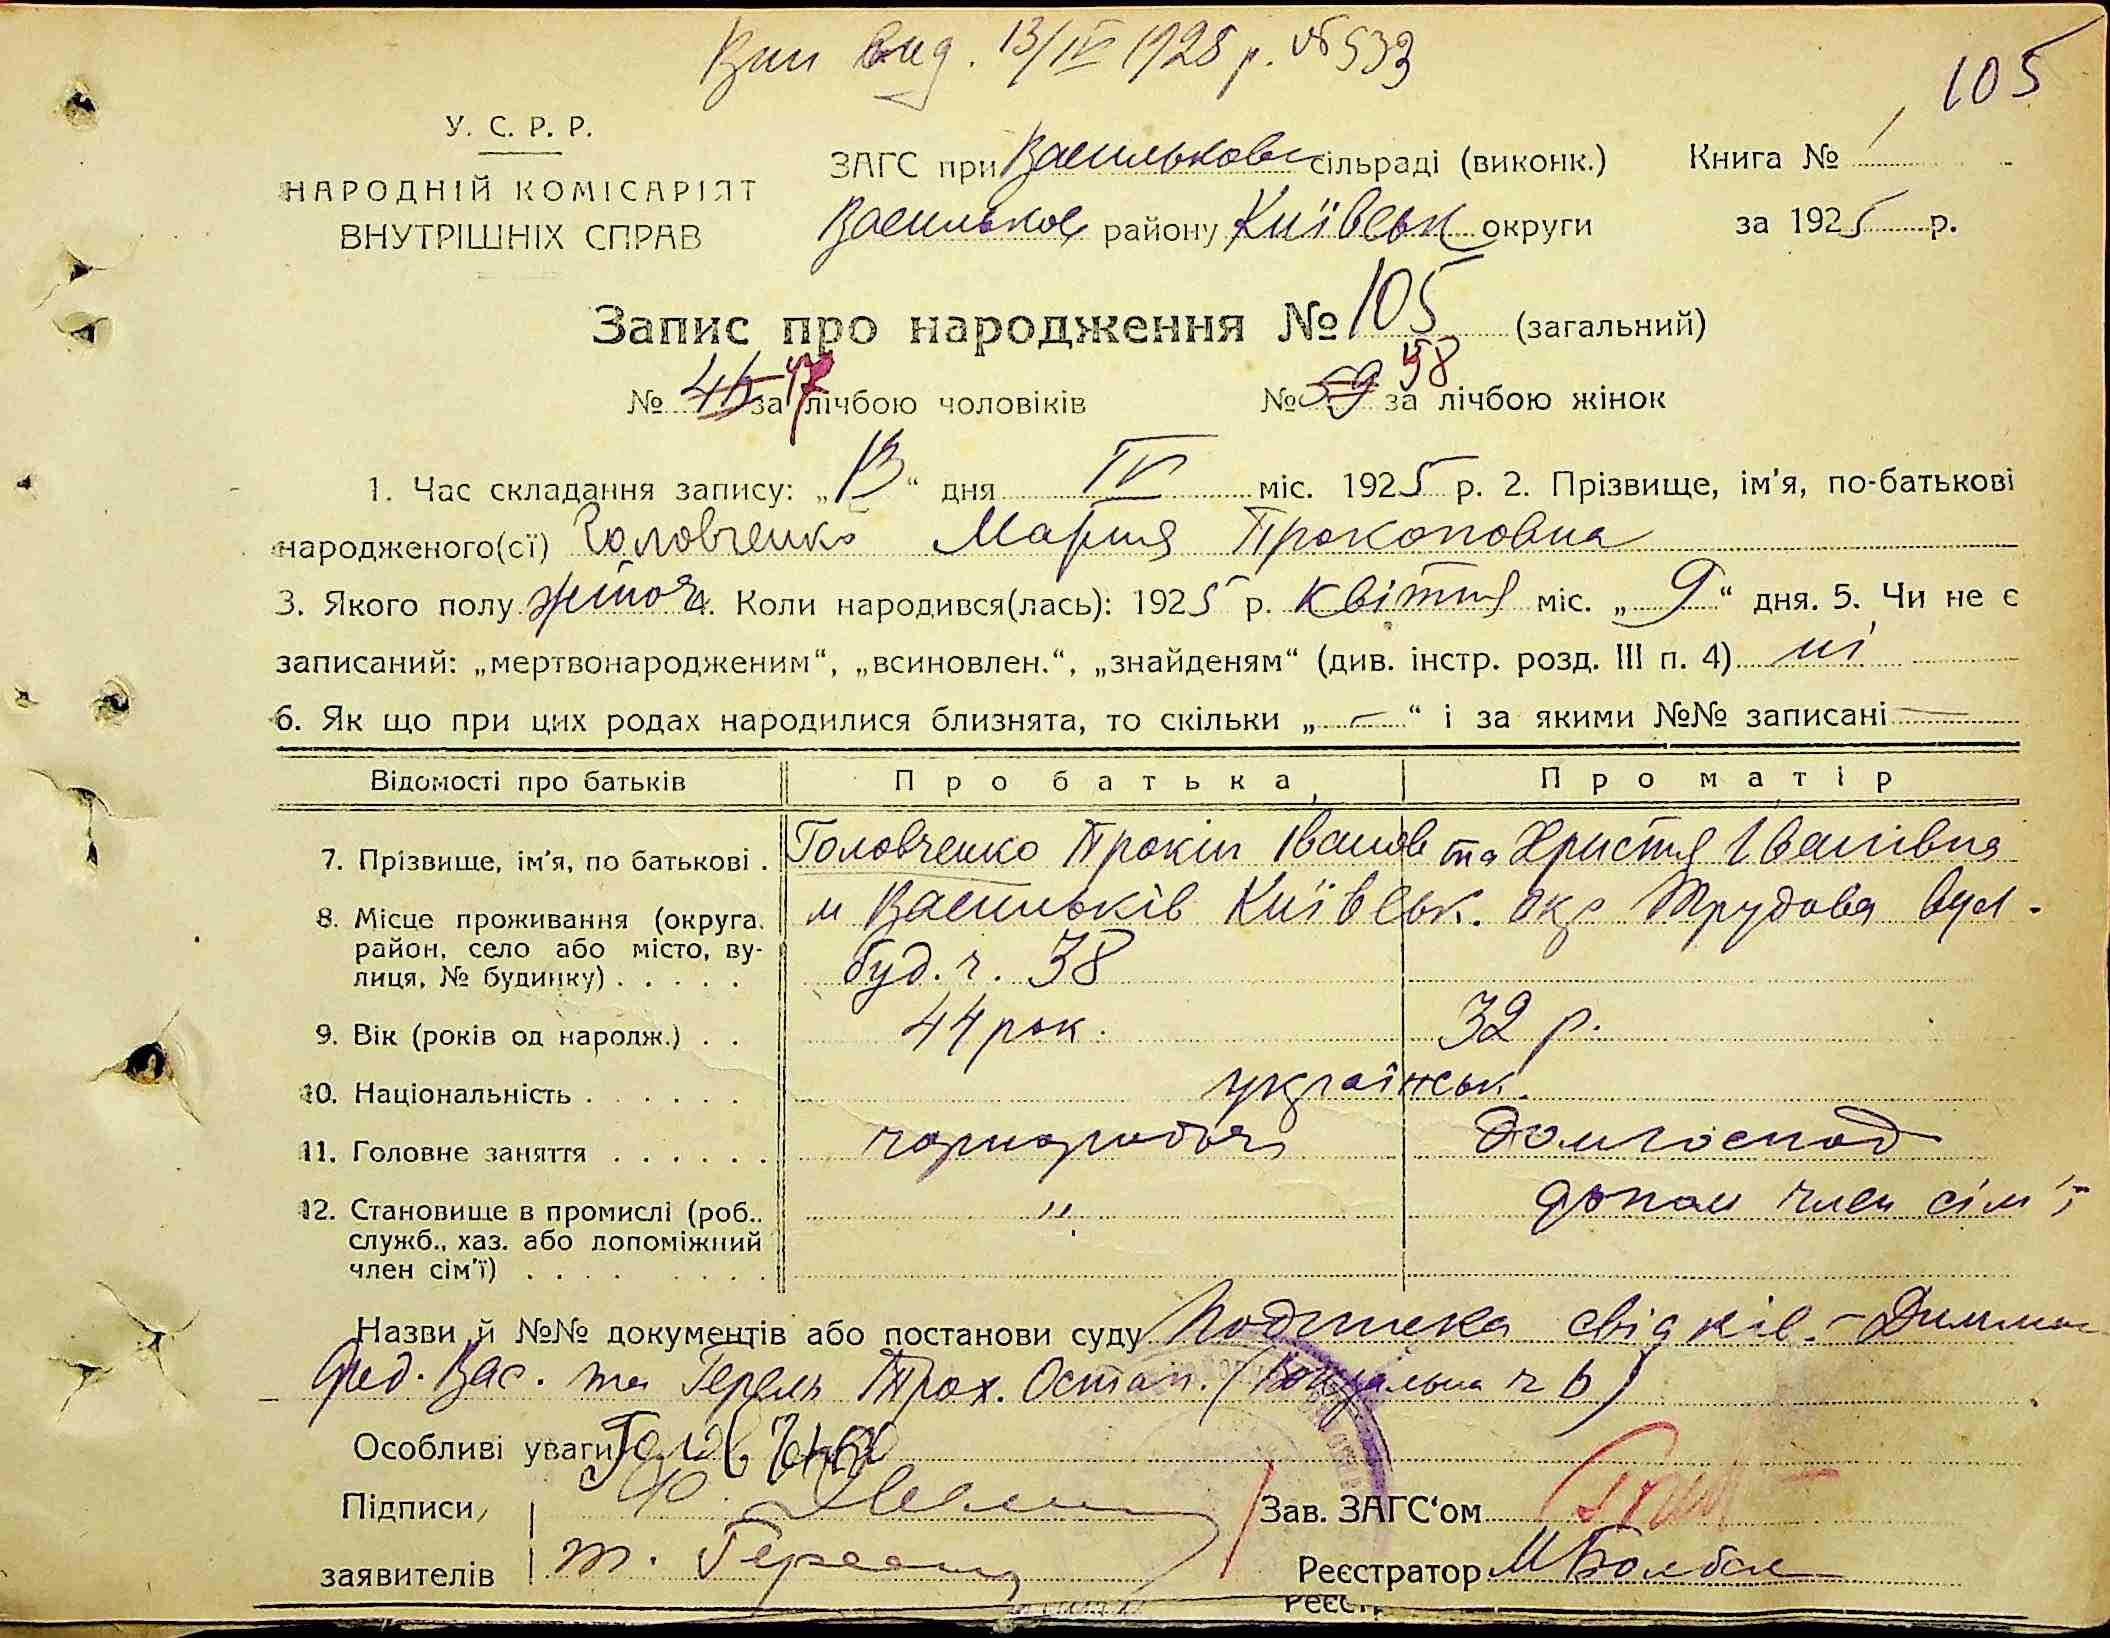 Вип вид. 13/IV 1928 р. № 533
105
У. С. Р. Р.
НАРОДНІЙ КОМІСАРІЯТ
ВНУТРІШНІХ СПРАВ
ЗАГС при Васильков сільраді (виконк.)
Васильков району Київськ округи
Книга № 1
за 1925 р.
Запис про народження № 105 (загальний)
№ 46 47 за лічбою чоловіків № 59 58 за лічбою жінок
1. Час складання запису: „13“ дня IV міс. 1925 р. 2. Прізвище, ім'я, по-батькові
народженого(сї) Головченко Мария Прокоповна
3. Якого полу жіноч 4. Коли народився(лась): 1925 р. квітня міс. „9“ дня. 5. Чи не є
записаний: „мертвонародженим“, „всиновлен.“, „знайденям“ (див. інстр. розд. III п. 4) ні
6. Як що при цих родах народилися близнята, то скільки „—“ і за якими №№ записані —
Відомості про батьків Про батька Про матір
7. Прізвище, ім'я, по батькові . Головченко Прокіп Іванов та Христя Іванівна
8. Місце проживання (округа, район, село або місто, ву-лиця, № будинку) . . . . . м Васильків Київськ. окр Трудова вул.
буд. ч. 38
9. Вік (років од народж.) . . 44 рок. 32 р.
10. Національність . . . . . . українськ.
11. Головне заняття . . . . . . чорнороботч домгоспод
12. Становище в промислі (роб.. служб., хаз. або допоміжний член сім'ї) . . . . " допом член сім'ї
Назви й №№ документів або постанови суду свідків. —
Фед. Вас. та Трох. Остап. (Вокзальна ч 6)
Особливі уваги Головченко
Підписи Ф.
заявителів Т.
Зав. ЗАГС‘ом
Реєстратор М